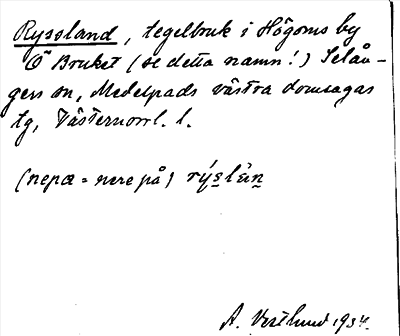 Ryssland, tegelbruk i Högoms by
Ö Bruket (se detta namn!) Selån-
gers sn, Medelpads västra domsagas
tg, Västernorrl. l.
(nepɑ = nere på) rýslàn
A. Vestlund 1934.